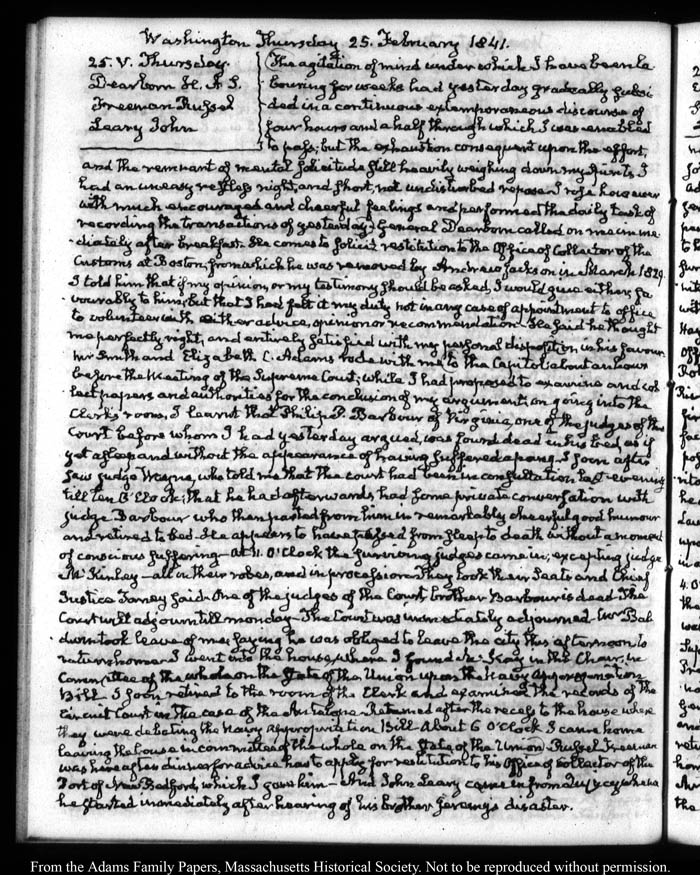 Washington Thursday 25. February 1841.
25. V. Thursday.
Dearborn H. A. S.
Freeman Russel
Leary John
The agitation of mind under which I have been la
bouring for weeks had yesterday gradually subsi
ded in a continuous extemporaneous discourse of
four hours and a half through which I was enabled
to pass; but the exhaustion consequent upon the effort,
and the remnant of mental solicitude still heavily weighing down my spirits, I
had an uneasy restless night, and short, not undisturbed repose. I rose however
with much encouraged and cheerful feelings and performed the daily task of
recording the transactions of yesterday. General Dearborn called on me imme
diately after breakfast. He comes to solicit restitution to the Office of Collector of the
Customs at Boston, from which he was removed by Andrew Jackson in March 1829.
I told him that if my opinion, or my testimony should be asked, I would give either, fa
vourably to him, but that I had felt it my duty not in any case of appointment to office
to volunteer with either advice, opinion or recommendation. He said he thought
me perfectly right, and entirely satisfied with my personal disposition in his favour.
Mr Smith and Elizabeth C. Adams rode with me to the Capitol about an hour
before the meeting of the Supreme Court; while I had proposed to examine and col
lect papers and authorities for the conclusion of my argument, on going into the
Clerk's room, I learnt that Philip P. Barbour of Virginia, one of the judges of the
Court before whom I had yesterday argued, was found dead in his bed, as if
yet asleep and without the appearance of having suffered a pang. I soon after
saw Judge Wayne, who told me that the court had been in consultation last evening
till ten O'Clock; that he had afterwards had some private conversation with
Judge Barbour, who then parted from him in remarkably cheerful good humour
and retired to bed. He appears to have passed from sleep to death without a moment
of conscious suffering— At 11. O'Clock the surviving judges came in; excepting judge
Mc.Kinley— all in their robes, and in procession. They took their seats and Chief
Justice Taney said. One of the judges of the Court brother Barbour is dead. The
Court will adjourn till monday. The Court was immediately adjourned. Mr Bal
dwin took leave of me, saying he was obliged to leave the city this afternoon to
return home. I went into the house, where I found in the Chair, in
Committee of the whole on the State of the Union upon the Navy Appropriation
Bill. I soon retired to the room of the Clerk and examined the records of the
Circuit Court in the case of the Antelope. Returned after the recess to the house where
they were debating the Navy appropriation Bill. About 6 O'Clock I came home
leaving the house in committee of the whole on the State of the Union. Russel Freeman
was here after dinner for advice how to apply for restitution to his Office of Collector of the
Port of New-Bedford, which I gave him— And John Leary came in from Quincy whence
he started immediately after hearing of his brother Jeremy's disaster.
From the Adams Family Papers, Massachusetts Historical Society. Not to be reproduced without permission.